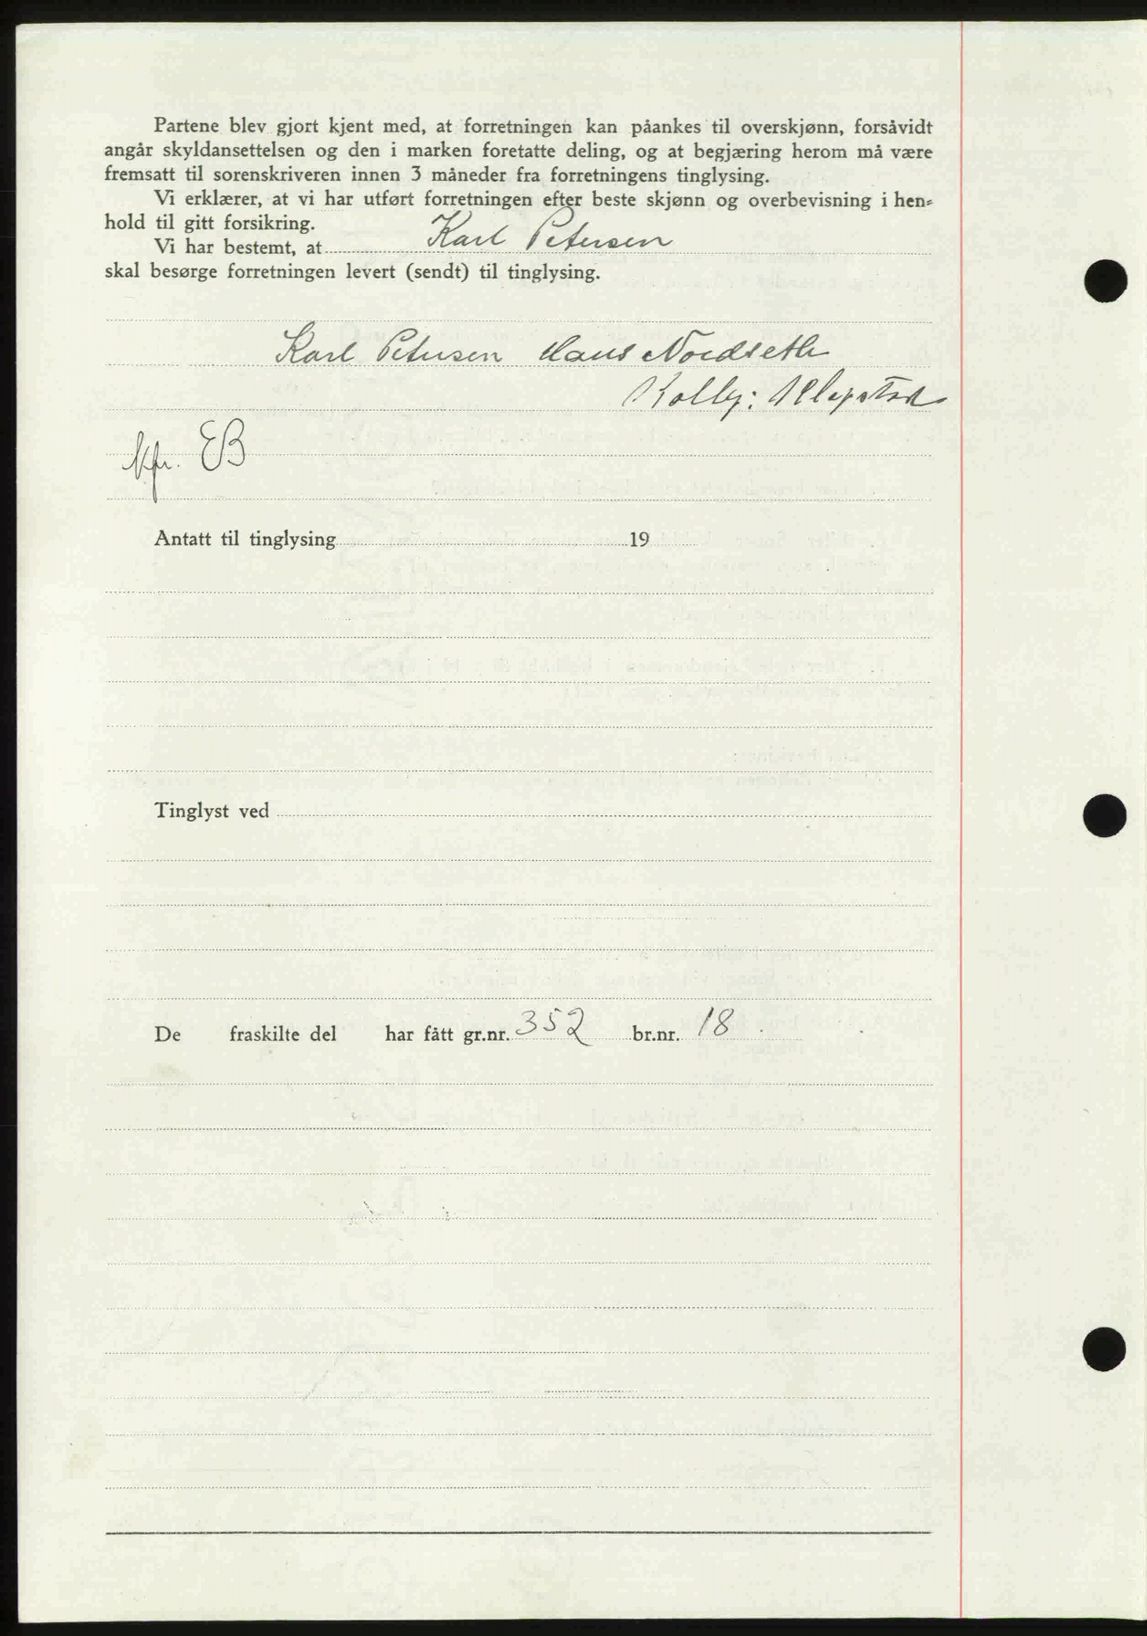 Partene blev gjort kjent med, at forretningen kan påankes til overskjønn, forsåvidt
angår skyldansettelsen og den i marken foretatte deling, og at begjæring herom må være
fremsatt til sorenskriveren innen 3 måneder fra forretningens tinglysing.
Vi erklærer, at vi har utført forretningen efter beste skjønn og overbevisning i hen=
hold til gitt forsikring.
Vi har bestemt, at Karl Petersen
skal besørge forretningen levert (sendt) til tinglysing.
Karl Petersen Hans Nordseth
Kolbj:
kfr. EB
Antatt til tinglysing 19
Tinglyst ved
De fraskilte del har fått gr.nr. 352 br.nr. 18